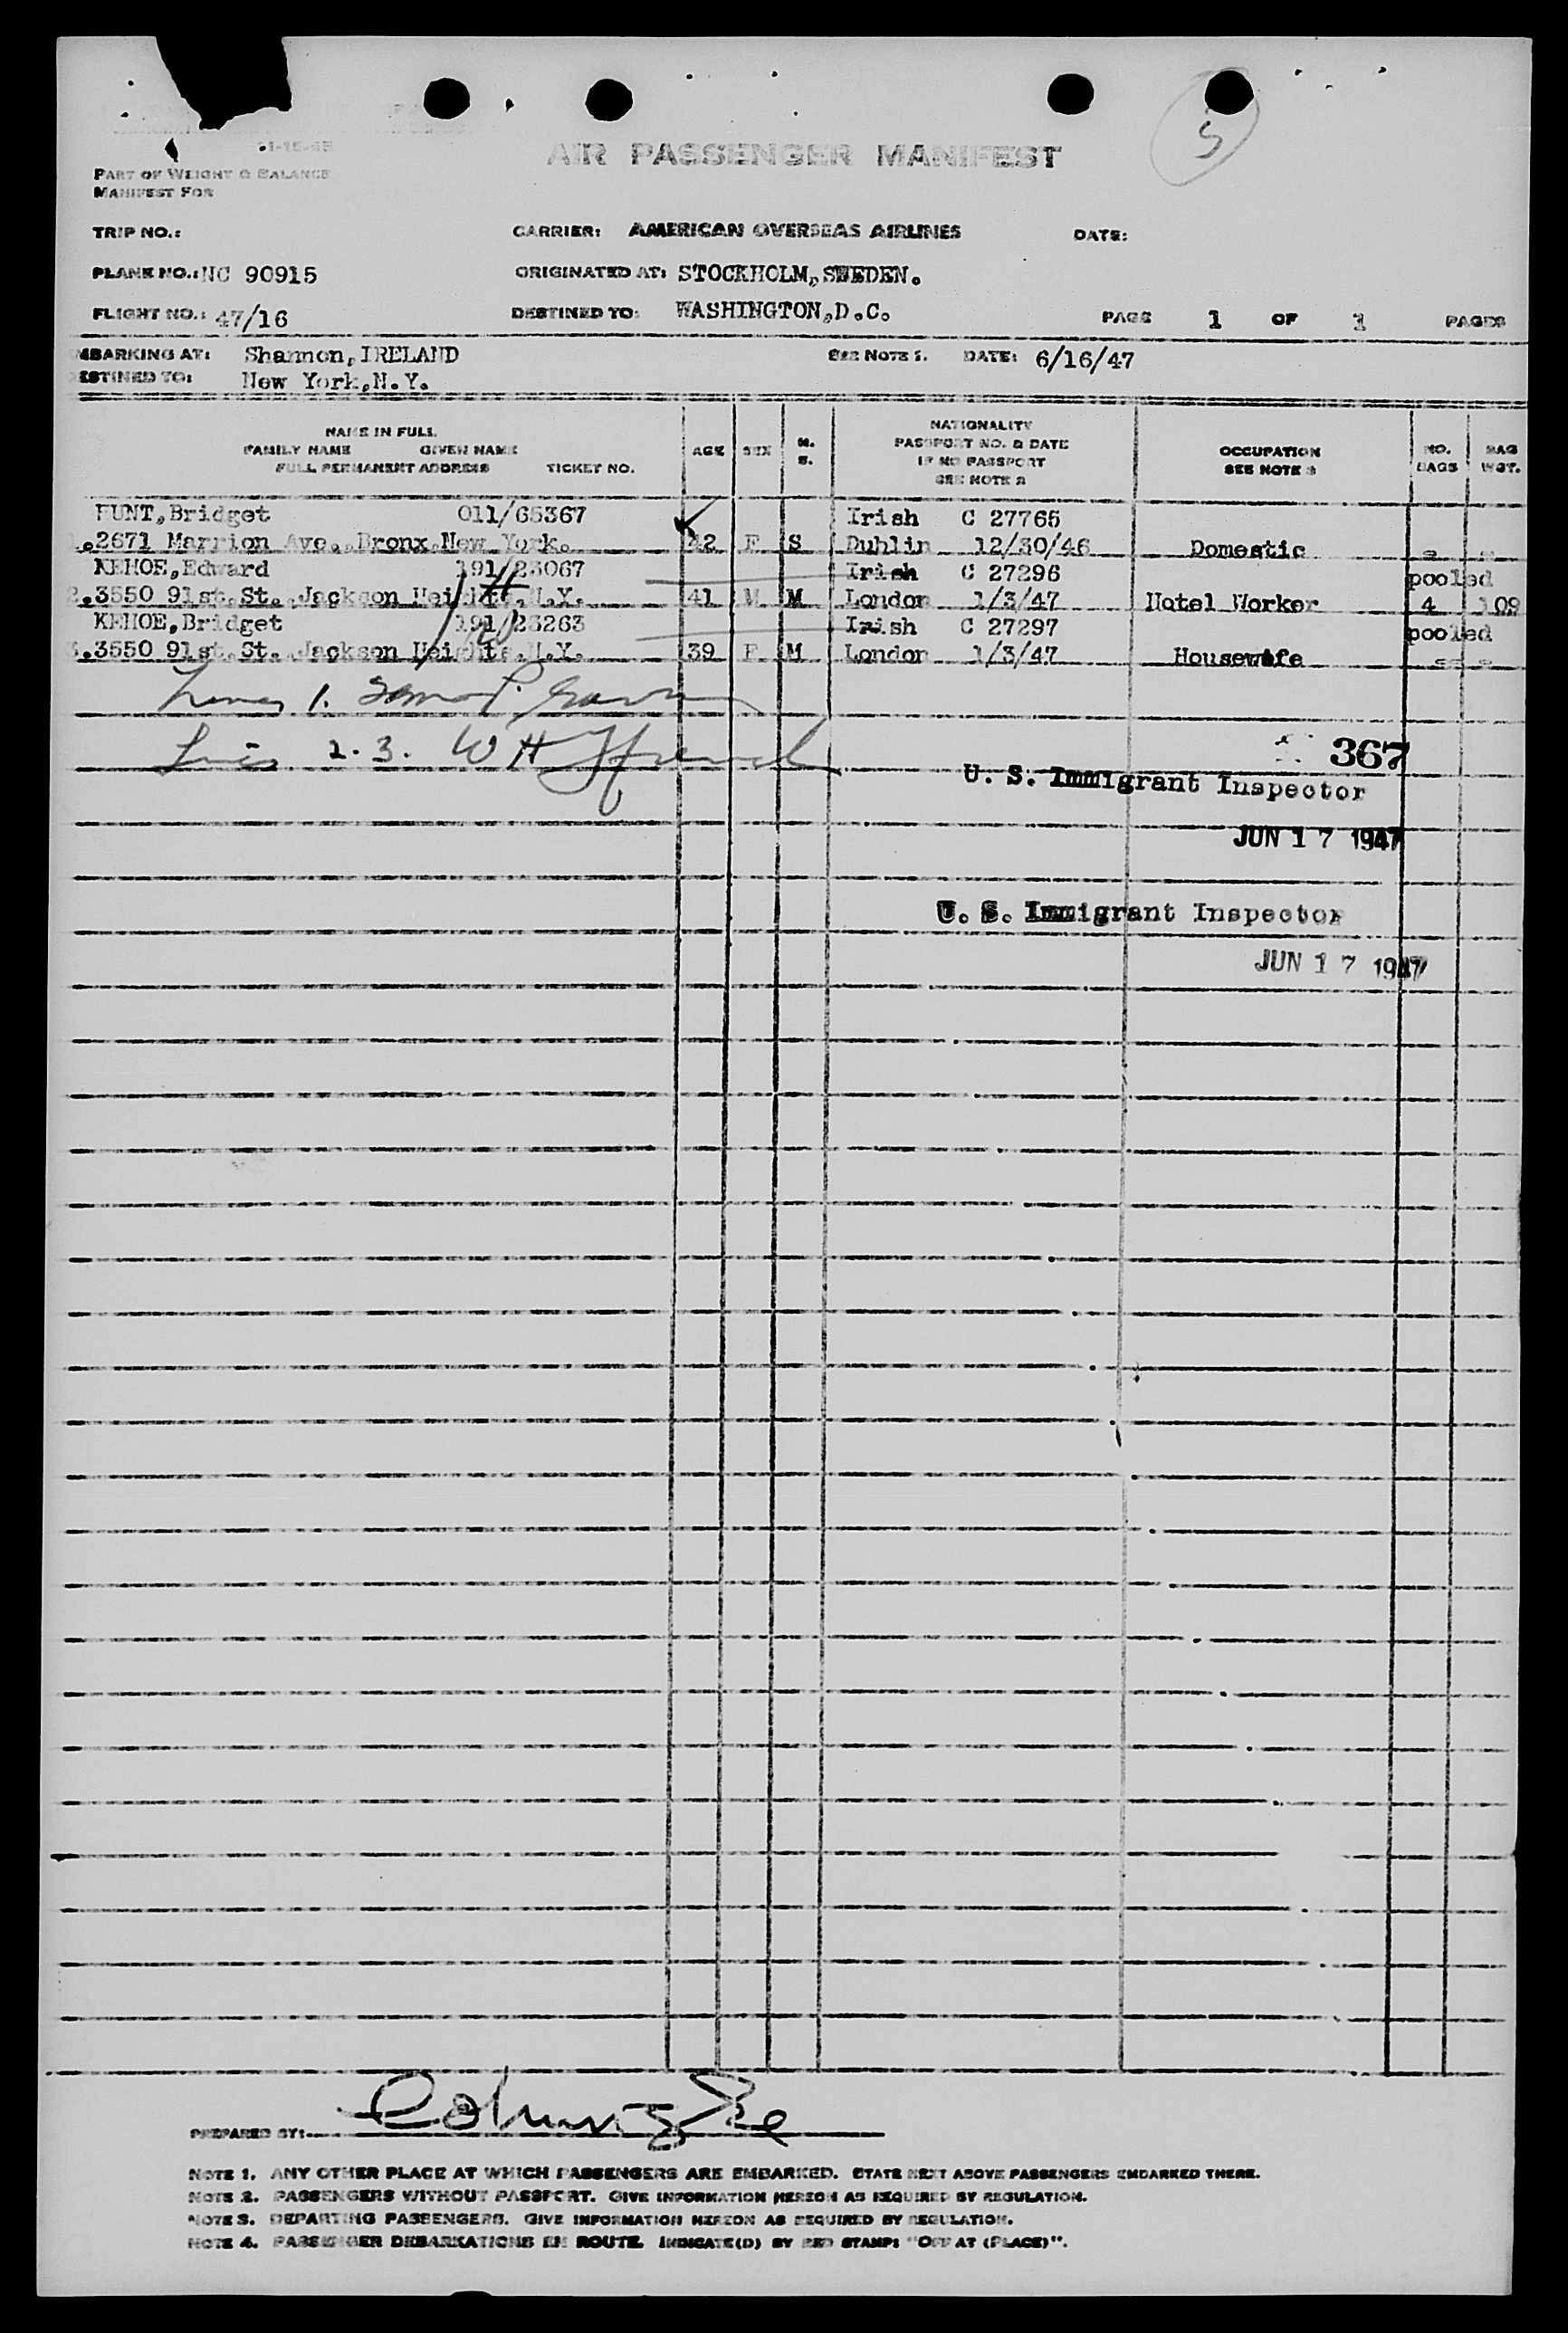 5
11-15-45
AIR PASSENGER MANIFEST
PART OF WEIGHT & BALANCE
MANIFEST FOR
TRIP NO.: CARRIER: AMERICAN OVERSEAS AIRLINES DATE:
PLANE NO.: NC 90915 ORIGINATED AT: STOCKHOLM, SWEDEN.
FLIGHT NO.: 47/16 DESTINED TO: WASHINGTON, D.C. PAGE 1 OF 1 PAGES
MBARKING AT: Shannon, IRELAND SEE NOTE 1. DATE: 6/16/47
ESTINED TO: New York, N.Y.
NAME IN FULL
FAMILY NAME GIVEN NAME
FULL PERMANENT ADDRESS TICKET NO.
AGE
SEX
M.
S.
NATIONALITY
PASSPORT NO. & DATE
IF NO PASSPORT
SEE NOTE 2
OCCUPATION
SEE NOTE 3
NO.
BAGS
BAG
WGT.
HUNT, Bridget 011/65367 Irish C 27765
1.2671 Marrion Ave., Bronx, New York. 42 F S Dublin 12/30/46 Domestic
KEHOE, Edward 191/23067 Irish C 27296 pooled
2.3550 91st. St., Jackson Heights, N.Y. 41 M M London 1/3/47 Hotel Worker 4 109
KEHOE, Bridget 191/23263 Irish C 27297 pooled
3.3550 91st. St., Jackson Heights, N.Y. 39 F M London 1/3/47 Housewife
1.
2. 3. W H
367
U. S. Immigrant Inspector
JUN 17 1947
U. S. Immigrant Inspector
JUN 17 1947
PREPARED BY:
NOTE 1. ANY OTHER PLACE AT WHICH PASSENGERS ARE EMBARKED. STATE NEXT ABOVE PASSENGERS EMBARKED THERE.
NOTE 2. PASSENGERS WITHOUT PASSPORT. GIVE INFORMATION HEREON AS REQUIRED BY REGULATION.
NOTE 3. DEPARTING PASSENGERS. GIVE INFORMATION HEREON AS REQUIRED BY REGULATION.
NOTE 4. PASSENGER DEBARKATIONS EN ROUTE. INDICATE(D) BY RED STAMP: "OFF AT (PLACE)".